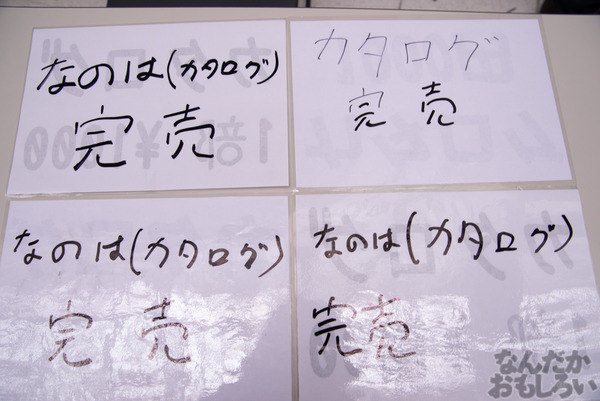 なのは(カタログ)
完売
カタログ
完売
なのは(カタログ)
完売
なのは(カタログ)
完売
なんだか
おもしろい